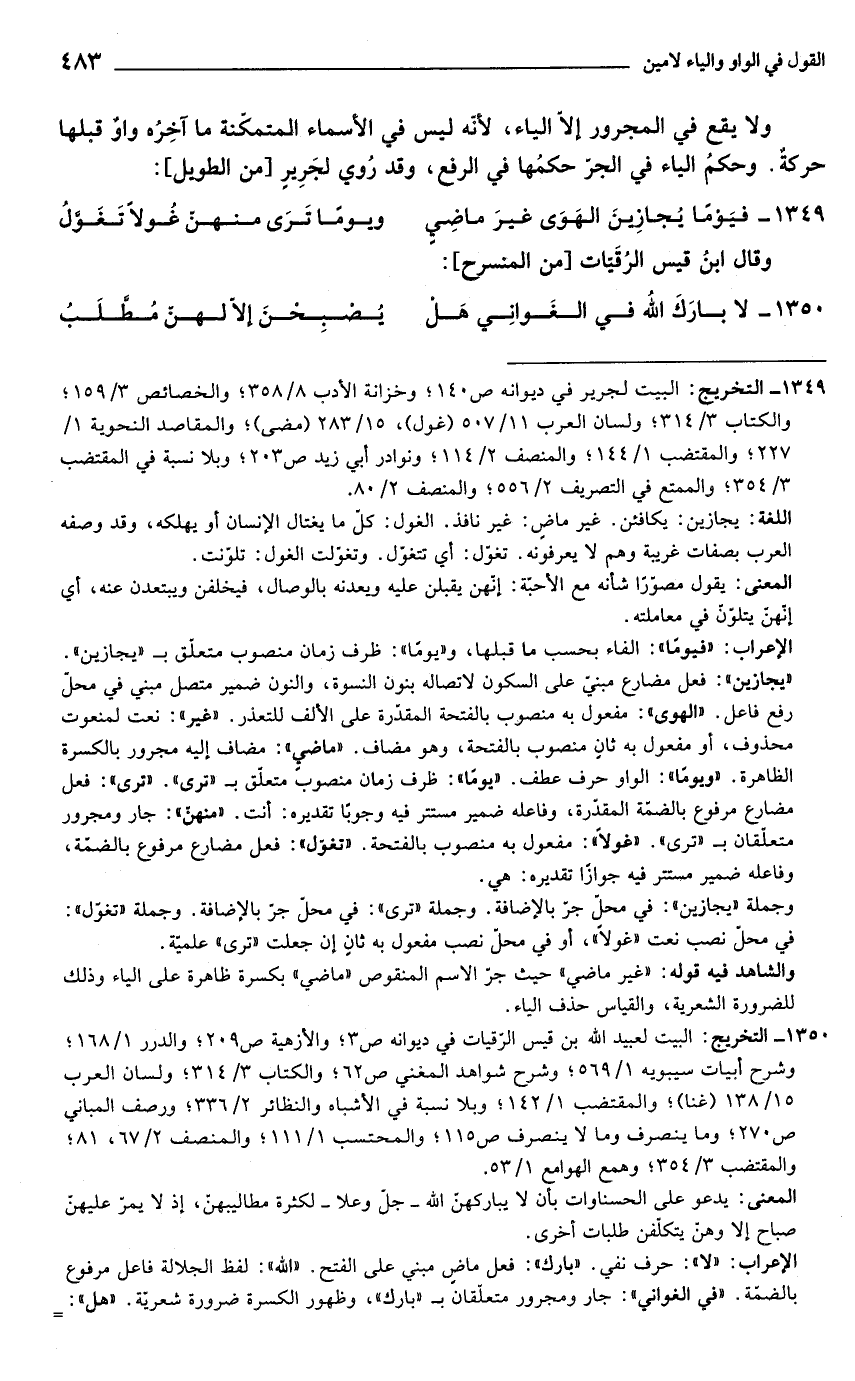 القول في الواو والياء لامين ٤٨٣
ولا يقع في المجرور إلاّ الياء، لأنّه ليس في الأسماء المتمكّنة ما آخِرُه واوٌ قبلها
حركةٌ. وحكمُ الياء في الجرّ حكمُها في الرفع، وقد رُوي لجَرِيرٍ [من الطويل]:
١٣٤٩ـ فيَوْمًا يُجازِينَ الهَوَى غيرَ ماضِيٍ ويـومًـا تَـرَى مـنـهـنّ غُـولاً تَـغَـوَّلُ
وقال ابنُ قيس الرُقَيّات [من المنسرح]:
١٣٥٠ـ لا بـارَكَ اللهُ فـي الـغَـوانِـي هَـلْ يُـصْـبِـحْـنَ إلاّ لـهـنّ مُـطَّـلَـبُ
١٣٤٩ـ التخريج: البيت لجرير في ديوانه ص١٤٠؛ وخزانة الأدب ٨/ ٣٥٨؛ والخصائص ٣/ ١٥٩؛
والكتاب ٣/ ٣١٤؛ ولسان العرب ١١/ ٥٠٧ (غول)، ١٥/ ٢٨٣ (مضى)؛ والمقاصد النحوية ١/
٢٢٧؛ والمقتضب ١/ ١٤٤؛ والمنصف ٢/ ١١٤؛ ونوادر أبي زيد ص٢٠٣؛ وبلا نسبة في المقتضب
٣/ ٣٥٤؛ والممتع في التصريف ٢/ ٥٥٦؛ والمنصف ٢/ ٨٠.
اللغة: يجازين: يكافئن. غير ماضٍ: غير نافذ. الغول: كلّ ما يغتال الإنسان أو يهلكه، وقد وصفه
العرب بصفات غريبة وهم لا يعرفونه. تغوّل: أي تتغوّل. وتغوّلت الغول: تلوّنت.
المعنى: يقول مصوّرًا شأنه مع الأحبّة: إنّهن يقبلن عليه ويعدنه بالوصال، فيخلفن ويبتعدن عنه، أي
إنّهنّ يتلوّنّ في معاملته.
الإعراب: «فيومًا»: الفاء بحسب ما قبلها، و«يومًا»: ظرف زمان منصوب متعلّق بـ «يجازين».
«يجازين»: فعل مضارع مبنيّ على السكون لاتصاله بنون النسوة، والنون ضمير متصل مبني في محلّ
رفع فاعل. «الهوى»: مفعول به منصوب بالفتحة المقدّرة على الألف للتعذر. «غير»: نعت لمنعوت
محذوف، أو مفعول به ثانٍ منصوب بالفتحة، وهو مضاف. «ماضيٍ»: مضاف إليه مجرور بالكسرة
الظاهرة. «ويومًا»: الواو حرف عطف. «يومًا»: ظرف زمان منصوب متعلّق بـ «ترى». «ترى»: فعل
مضارع مرفوع بالضمّة المقدّرة، وفاعله ضمير مستتر فيه وجوبًا تقديره: أنت. «منهنّ»: جار ومجرور
متعلّقان بـ «ترى». «غولاً»: مفعول به منصوب بالفتحة. «تغوّل»: فعل مضارع مرفوع بالضمّة،
وفاعله ضمير مستتر فيه جوازًا تقديره: هي.
وجملة «يجازين»: في محلّ جرّ بالإضافة. وجملة «ترى»: في محلّ جرّ بالإضافة. وجملة «تغوّل»:
في محلّ نصب نعت «غولاً»، أو في محلّ نصب مفعول به ثانٍ إن جعلت «ترى» علميّة.
والشاهد فيه قوله: «غير ماضي» حيث جرّ الاسم المنقوص «ماضي» بكسرة ظاهرة على الياء وذلك
للضرورة الشعرية، والقياس حذف الياء.
١٣٥٠ـ التخريج: البيت لعبيد الله بن قيس الرّقيات في ديوانه ص٣؛ والأزهية ص٢٠٩؛ والدرر ١/ ١٦٨؛
وشرح أبيات سيبويه ١/ ٥٦٩؛ وشرح شواهد المغني ص٦٢؛ والكتاب ٣/ ٣١٤؛ ولسان العرب
١٥/ ١٣٨ (غنا)؛ والمقتضب ١/ ١٤٢؛ وبلا نسبة في الأشباه والنظائر ٢/ ٣٣٦؛ ورصف المباني
ص٢٧٠؛ وما ينصرف وما لا ينصرف ص١١٥؛ والمحتسب ١/ ١١١؛ والمنصف ٢/ ٦٧، ٨١؛
والمقتضب ٣/ ٣٥٤؛ وهمع الهوامع ١/ ٥٣.
المعنى: يدعو على الحسناوات بأن لا يباركهنّ الله ـ جلّ وعلا ـ لكثرة مطاليبهنّ، إذ لا يمرّ عليهنّ
صباح إلا وهنّ يتكلّفن طلبات أخرى.
الإعراب: «لا»: حرف نفي. «بارك»: فعل ماضٍ مبني على الفتح. «الله»: لفظ الجلالة فاعل مرفوع
بالضمّة. «في الغواني»: جار ومجرور متعلّقان بـ «بارك»، وظهور الكسرة ضرورة شعريّة. «هل»: =